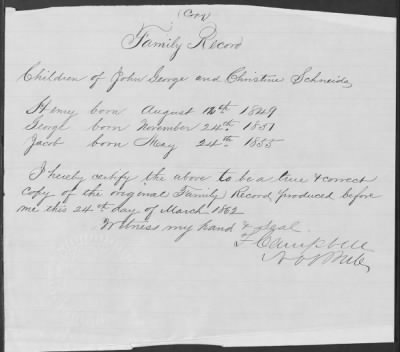 (Copy)
Family Record
Children of John George and Christine Schneider
Henry born August 12th 1849
George born November 24th 1851
Jacob born May 24th 1855
I hereby certify the above to be a true & correct
copy of the original Family Record produced before
me this 24th day of March 1862
Witness my hand & seal.
F Campbell